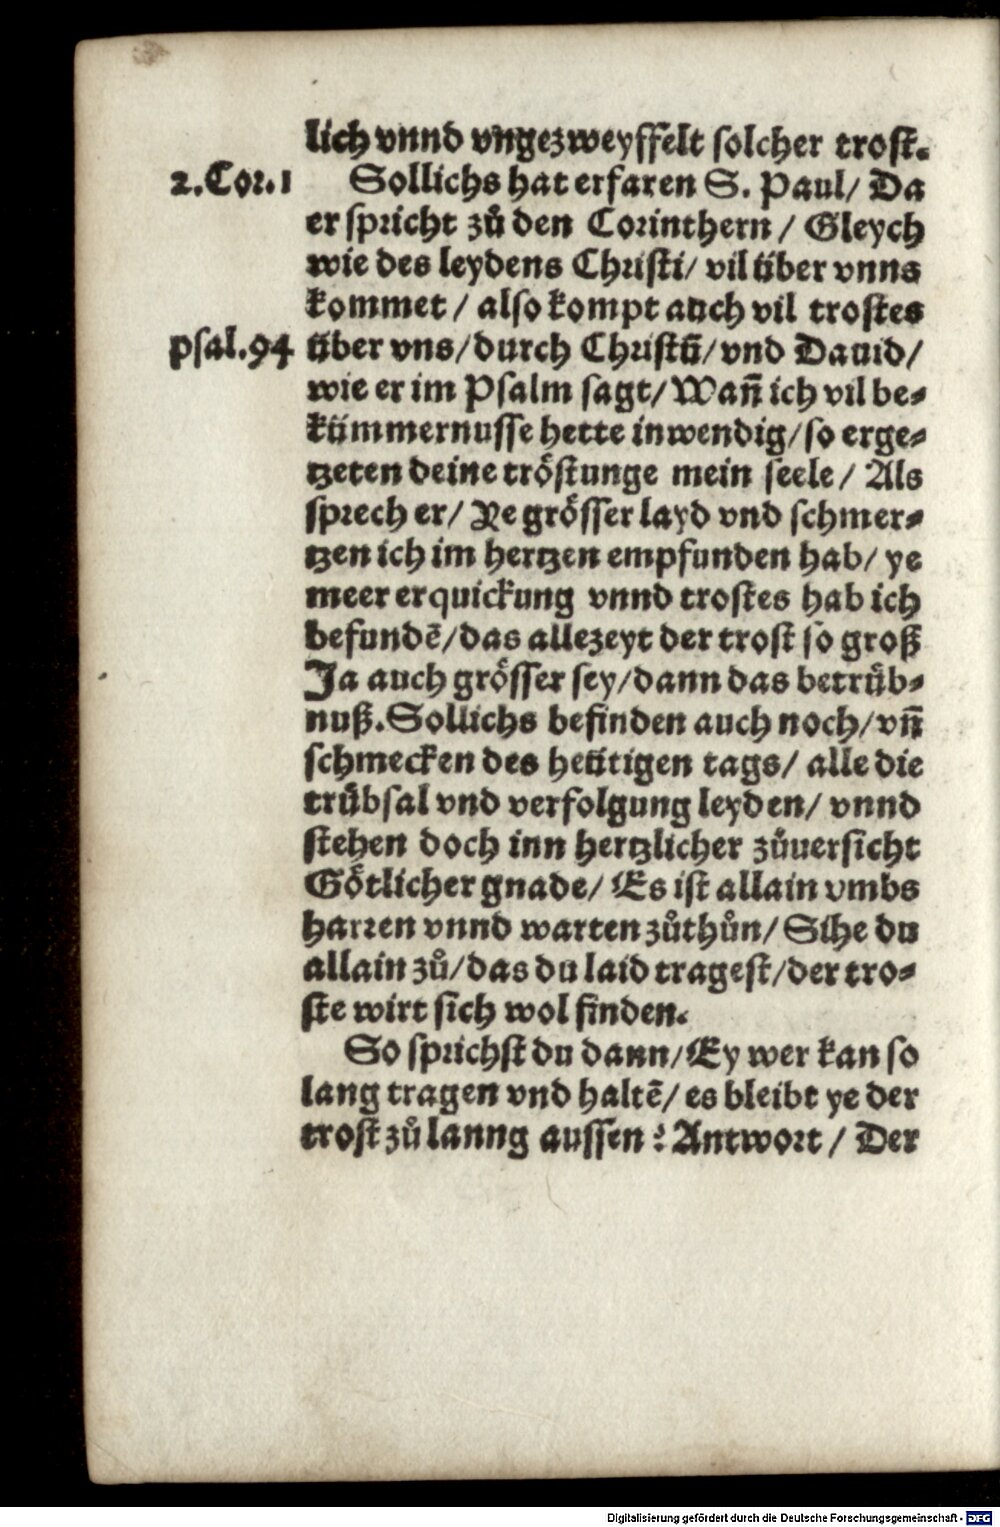 lich vnnd vngezweyffelt solcher trost.
2.Cor.1 Sollichs hat erfaren S. Paul/ Da
er spricht zů den Corinthern / Gleych
wie des leydens Christi/ vil über vnns
kommet / also kompt auch vil trostes
Psal.94 über vns/durch Christū/vnd Dauid/
wie er im Psalm sagt/ Wañ ich vil be-
kümmernusse hette inwendig/so erge-
tzeten deine tröstunge mein seele / Als
sprech er/ Ye grösser layd vnd schmer-
tzen ich im hertzen empfunden hab/ ye
meer erquickung vnnd trostes hab ich
befundē/das allezeyt der trost so groß
Ja auch grösser sey/dann das betrüb-
nuß. Sollichs befinden auch noch/vñ
schmecken des heütigen tags/ alle die
trübsal vnd verfolgung leyden/ vnnd
stehen doch inn hertzlicher zůuersicht
Götlicher gnade/ Es ist allain vmbs
harren vnnd warten zůthůn/ Sihe du
allain zů/das du laid tragest/der tro-
ste wirt sich wol finden.
So sprichst du dann/Ey wer kan so
lang tragen vnd haltē/ es bleibt ye der
trost zů lanng aussen? Antwort / Der
Digitalisierung gefördert durch die Deutsche Forschungsgemeinschaft - DFG